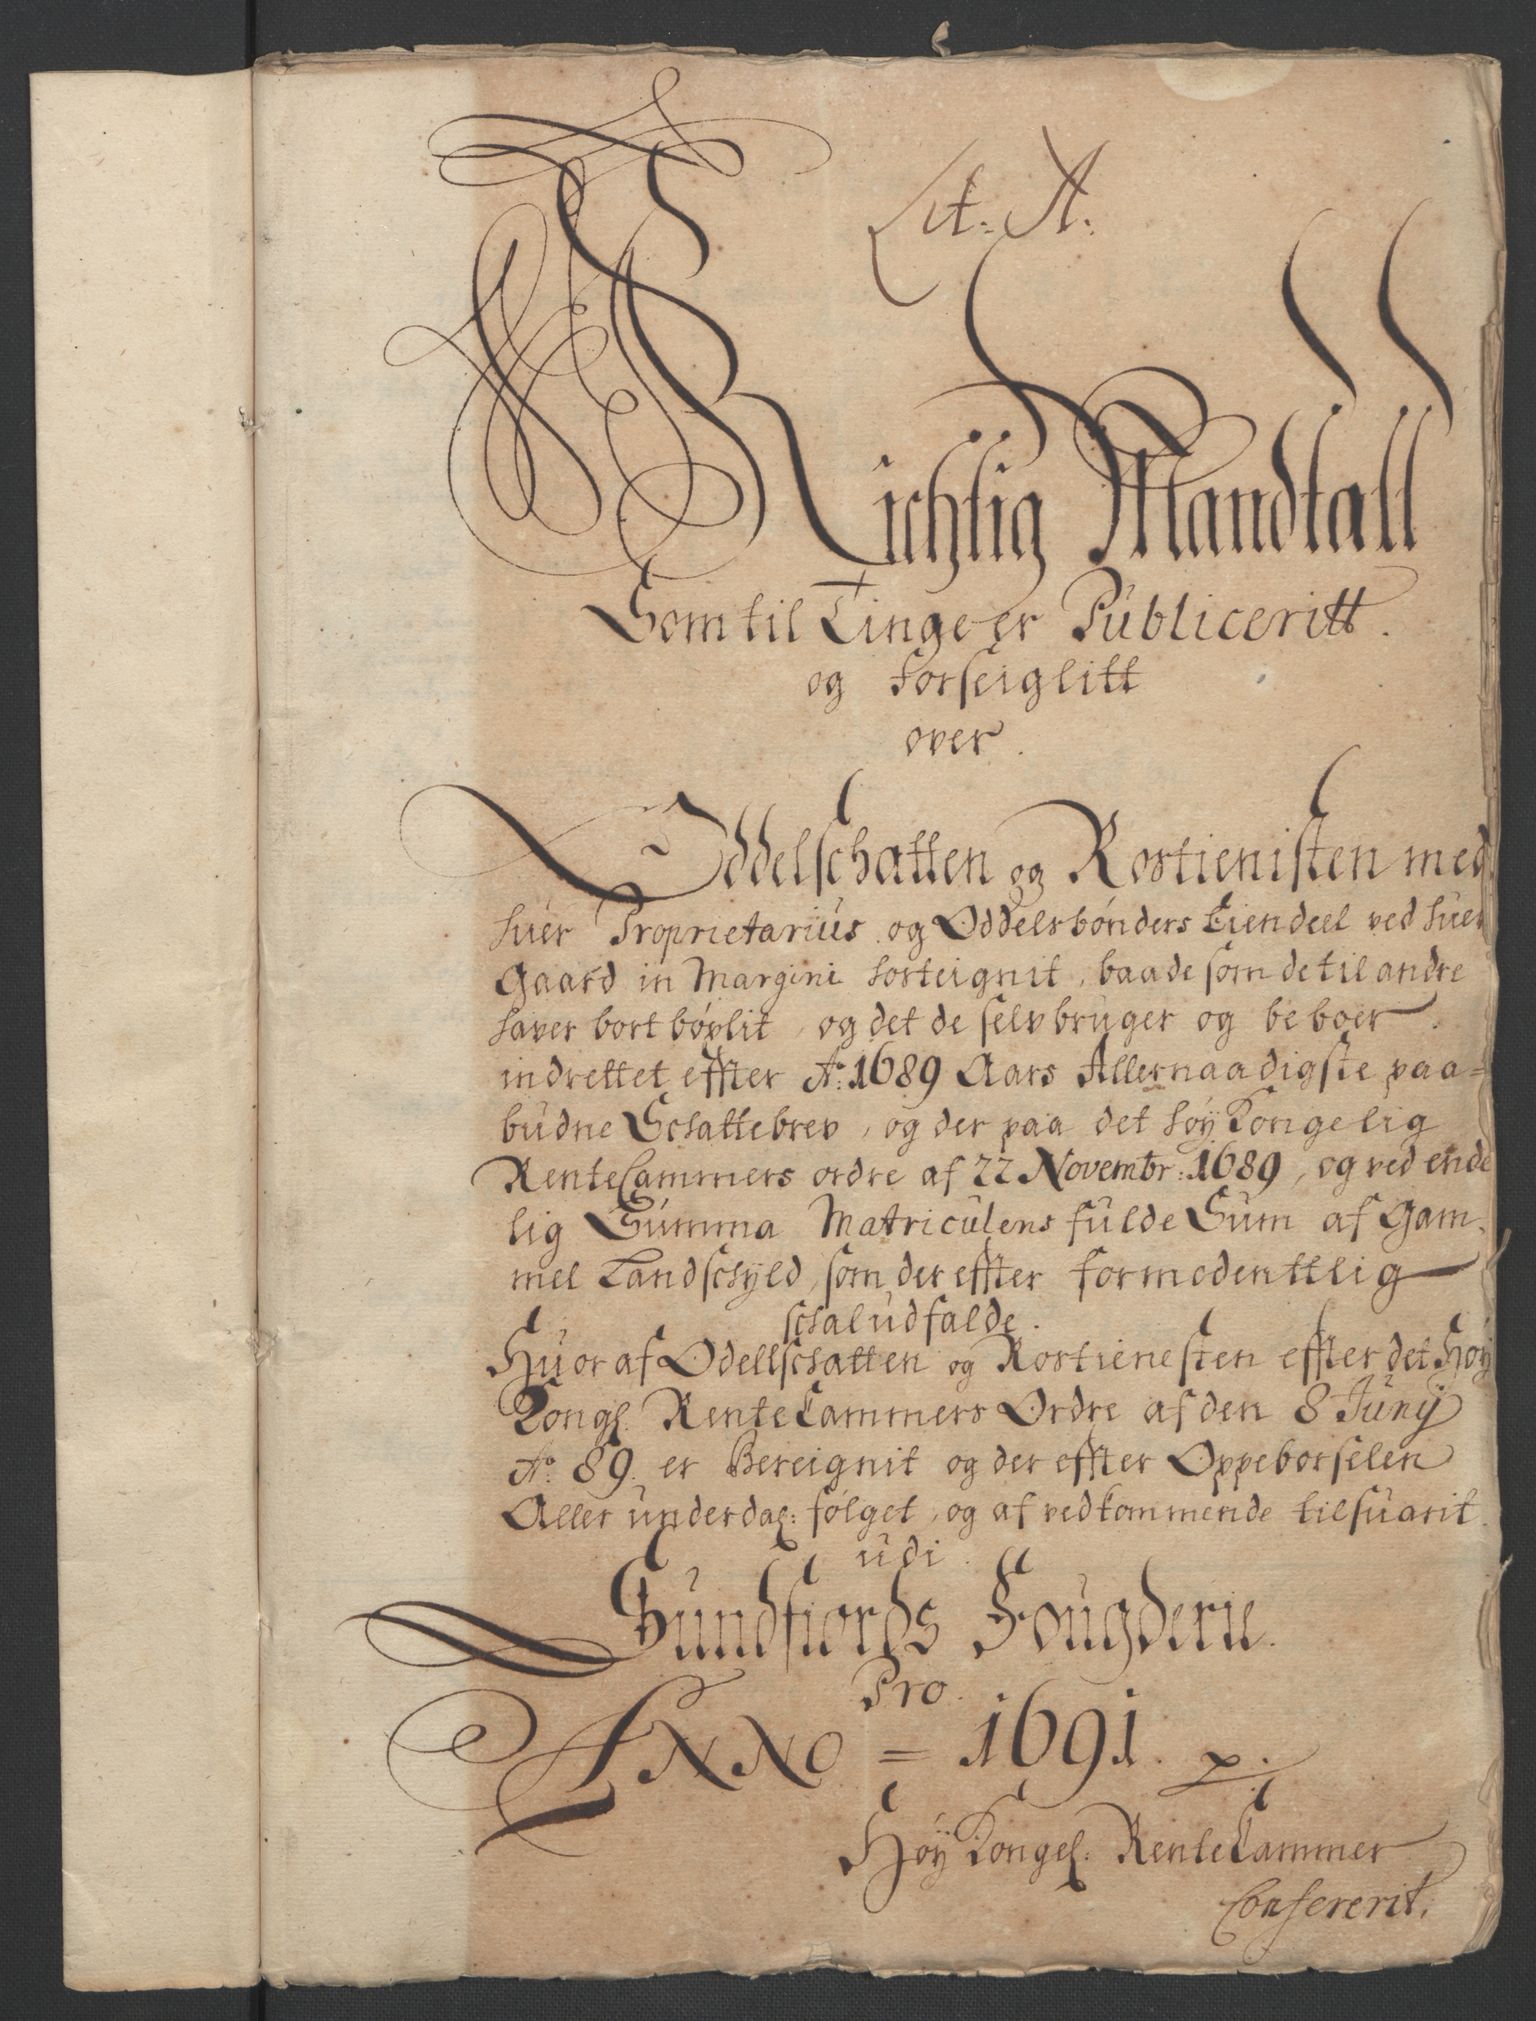 Lit: A:
Richtig Mandtall
Som til Tinge er Publiceritt.
og forseiglitt
over.
Oddelschatten og Rostienisten med
huer Proprietarius og Oddelsbønders Eiendeel ved huer
Gaard in Margini forteignit, baade som de til andre
haver bort bøxlit, og det de selv bruger og beboer.
indrettet effter Ao: 1689 Aars Allernaadigste paa=
budne Schattebrev, og der paa det høy Kongelig
RenteCammers ordre af 22 Novembr: 1689, og ved ende
lig Summa Matriculens fulde Sum af Gam¬
mel Landschyld, som der effter formodentlig
schal udfalde.
Huoraf Odellschatten og Rostienesten effter det Høy
Kongl. RenteCammers Ordre af den 8 Juny
Ao: 89. er Bereignit og der effter Oppeborselen
Aller underdal: følget, og af vedkommende tilsuarit.
udi.
Sundfiords Fougderie.
Pro.
Anno = 1691. p.
Høy Kongel: RenteCammer
Confererit.